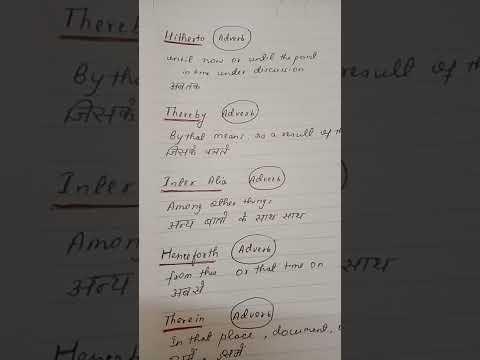 Hitherto Adverb
until now or until the point
in time under discussion
अबतक
Thereby Adverb
By that means, as a result of th
जिसके चलते
Inter Alia Adverb
Among other things
अन्य बातों के साथ साथ
Henceforth Adverb
from this or that time on
अबसे
Therein Adverb
In that place, document,